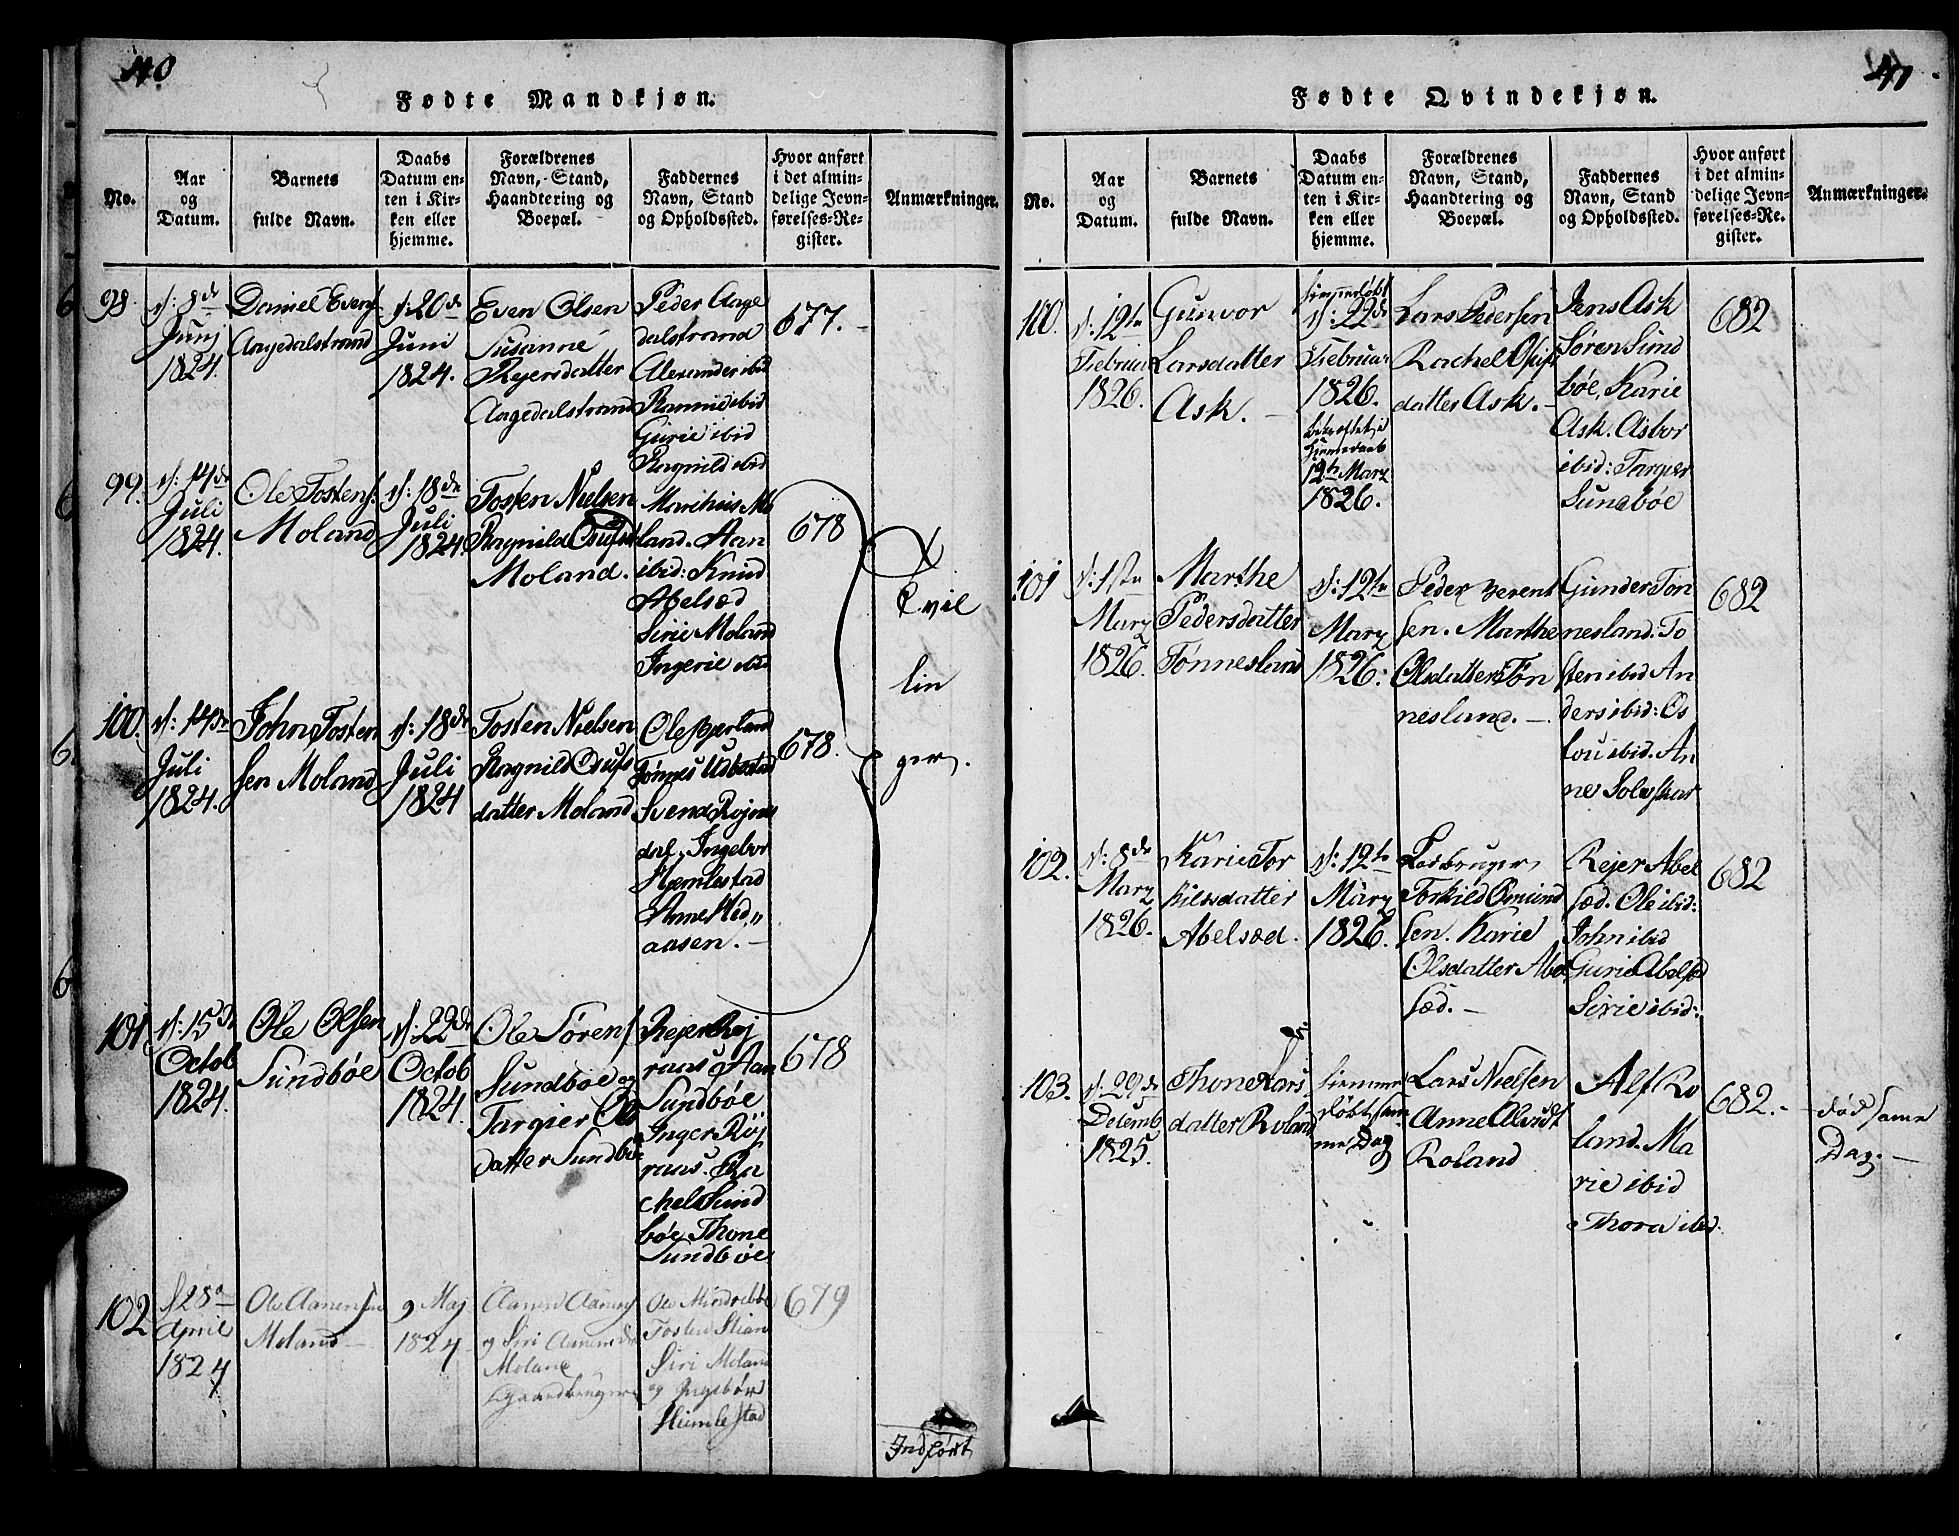 40
Fødte Mandkjøn.
No.
Aar
og
Datum.
Barnets
fulde Navn.
Daabs
Datum en-
ten i Kir-
ken eller
hjemme.
Forældrenes
Navn, Stand,
Haandtering og
Boepæl.
Faddernes
Navn, Stand
og Opholdssted.
Hvor anført
i det almin-
delige Jevn-
førelses-Re-
gister.
Anmærkninger.
98.
d: 8de
Junj
1824.
Daniel Evens:
Aagedalstrand
d: 20de
Juni
1824.
Even Olsen
Susanne
Rejersdatter
Aagedalstrand
Peder Aage
dalstrand
Alexander ibid
Rannie ibid
Gurie ibid
Ragnild ibid
677.
99.
d: 14de
Juli
1824.
Ole Tostens:
Moland
d: 18de
Juli
1824.
Tosten Nielsen
Ragnild Osufsd
Moland.
Mathius Mo
land. Aan
ibid: Knud
Abelsæd
Sirie Moland
Ingerie ibid
678
Tvil
lin
ger.
100.
d: 14de
Juli
1824.
John Tosten
sen Moland
d: 18de
Juli
1824
Tosten Nielsen
Ragnild Osufs
datter Moland
Ole Bjerland
Tønnes Udbøstad
Svend Røjnes
dal, Ingebor
Hæmlestad
Anne Hed„
aasen.
678.
101.
d: 15de
Octob
1824.
Ole Olsen
Sundbøe
d: 22de
Octob
1824.
Ole Sørens
Sundbøe og
Targier Ols
datter Sundbøe
Rejer Røj
raas, Aan
Sundbøe
Inger Røj
raas. Ra
chel Sund
bøe Thone
Sundbøe
678
102
d 28de
April
1824
Ole Aanensen
Moland
9 Maj
1824
Aanen Aanens
og Siri Aanensdr
Moland
Gaardbruger
Ole Mindrebøe
Tosten Stian
Siri Moland
og Ingebør
Humlestad
679
Indført
41
Fødte Qvindekjøn.
No.
Aar
og
Datum.
Barnets
fulde Navn.
Daabs
Datum en-
ten i Kir-
ken eller
hjemme.
Forældrenes
Navn, Stand,
Haandtering og
Boepæl.
Faddernes
Navn, Stand
og Opholdssted.
Hvor anført
i det almin-
delige Jevn-
førelses-Re-
gister.
Anmærkninger.
100.
d: 12te
Februar
1826.
Gunvor
Larsdatter
Ask.
hjemmedøbt
d: 22de
Februar
1826.
bekræftet i
12te Marz
1826.
Lars Pedersen
Rachel Osufs
datter Ask.
Jens Ask
Søren Sund
bøe, Karie
Ask. Asbor
ibid: Targier
Sundbøe
682
101
d: 1ste
Marz
1826.
Marthe
Pedersdatter
Tønnesland
d: 12te
Marz
1826.
Peder Berent
sen. Marthe
Olsdatter Tøn
nesland.
Gunder Tøn
nesland. To
sten ibid An
ders ibid: Os
lou ibid. An
ne Soleskar
682
102.
d: 8de
Marz
1826.
Karie Tor
kilsdatter
Abelsæd.
d: 12te
Marz
1826.
Torkild Omund
sen. Karie
Olsdatter Abel
sæd.
Rejer Abel
sæd. Ole ibid:
John ibid
Gurie Abelsæd
Sirie ibid:
682
103.
d: 29de
Decemb
1825.
Thone Lars
datter Roland
hjemme
døbt sam
me Dag
Lars Nielsen
Anne Alevsdt
Roland
Alf Ro
land. Ma
rie ibid
Thora ibid.
682.
død samme
Dag.